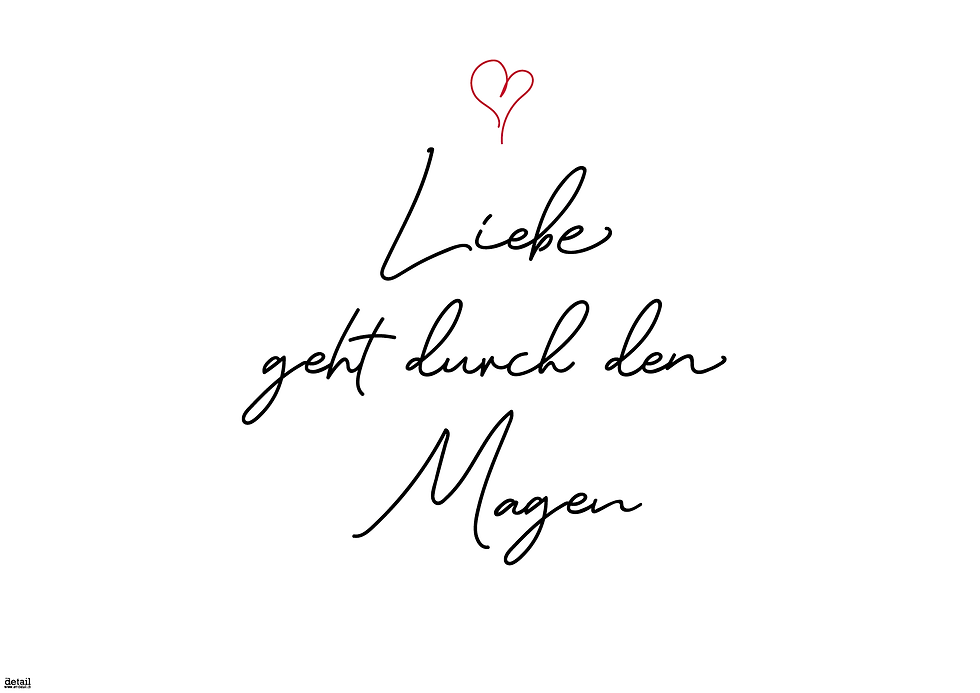 Liebe
geht durch den
Magen
detail